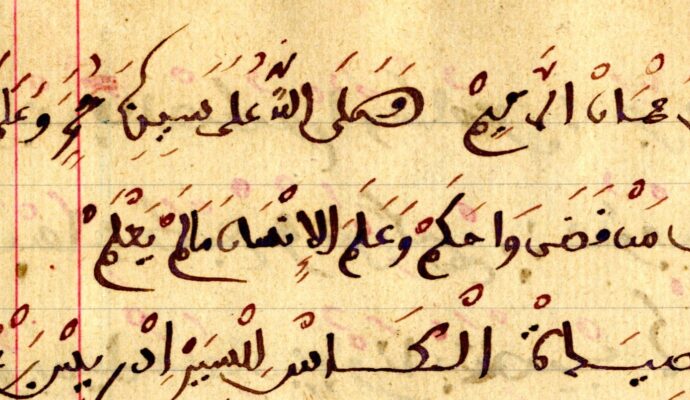 حْمَانْ الرَّحِيمْ وَصَلَى اللهُ عَلَى سَيِدِنَا مُحَمَّد وَعَلَى
مَنْ قَضَى وَاحَكَمْ وَعَلَمَ الاِنْسَانَ مَالَمْ يَعْلَمْ
صِيَدةْ الْكَاسْ لِلْسَيْدْ اِدْرِيسْ بَنْ